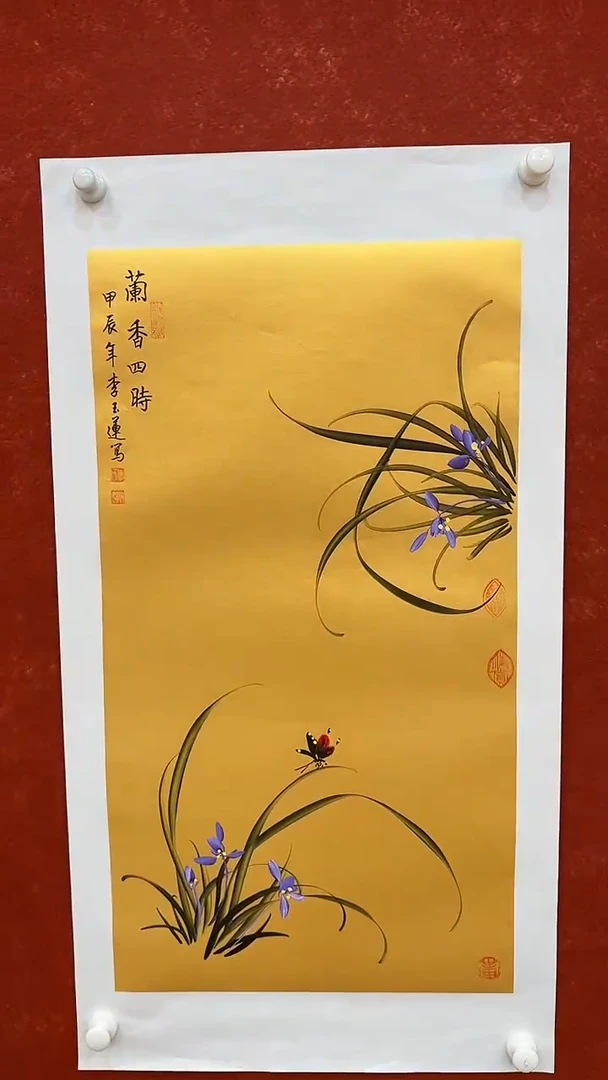 蘭香四時
甲辰年李玉運寫